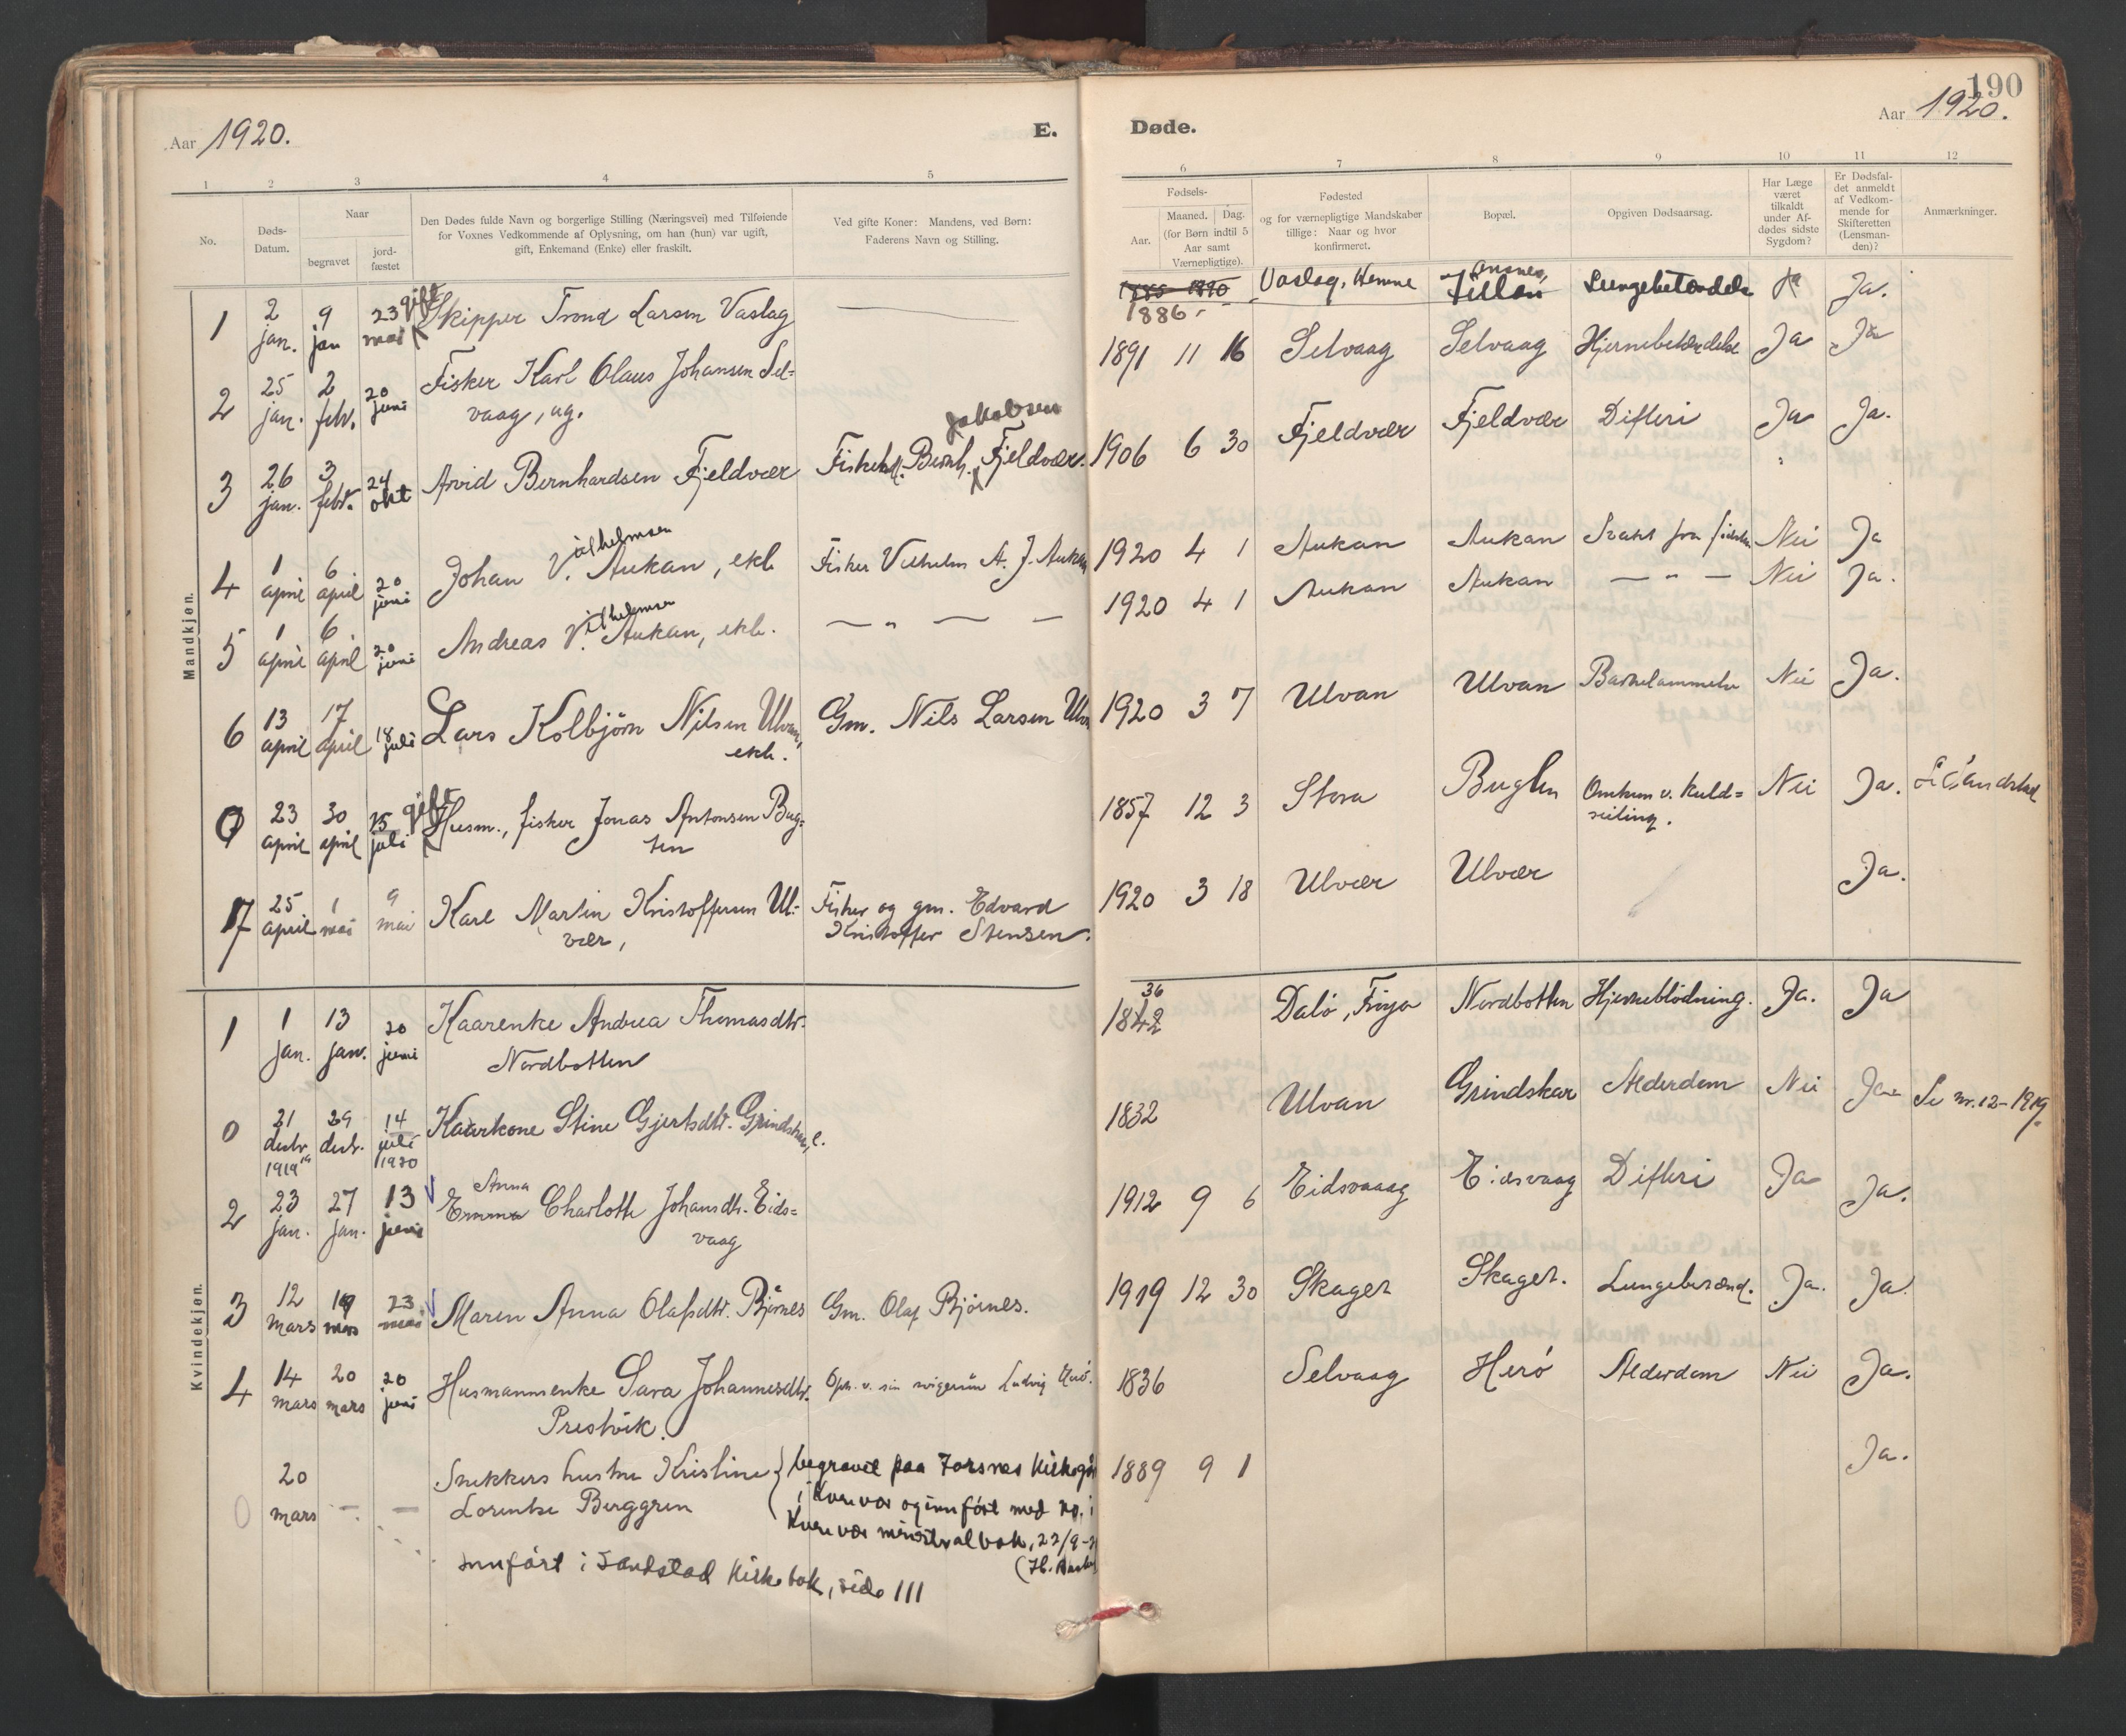 190
Aar 1920.
E.
Døde.
Aar 1920.
1 2 3 4 5 6 7 8 9 10 11 12
No.
Døds-
Datum.
Naar
begravet
jord-
fæstet
Den Dødes fulde Navn og borgerlige Stilling (Næringsvei) med Tilføiende
for Voxnes Vedkommende af Oplysning, om han (hun) var ugift,
gift, Enkemand (Enke) eller fraskilt.
Ved gifte Koner: Mandens, ved Børn:
Faderens Navn og Stilling.
Fødsels-
Aar.
Maaned. Dag.
(for Børn indtil 5
Aar samt
Værnepligtige).
Fødested
og for værnepligtige Mandskaber
tillige: Naar og hvor
konfirmeret.
Bopæl.
Opgiven Dødsaarsag.
Har Læge
været
tilkaldt
under Af-
dødes sidste
Sygdom?
Er Dødsfal-
det anmeldt
af Vedkom-
mende for
Skifteretten
(Lensman-
den)?
Anmærkninger.
Mandkjøn.
1 2 jan. 9 jan 23 mai gift Skipper Trond Larsen Vaslag 1886 Vaslag, Hemne Fillan Lungebetændelse Ja Ja.
2 25 jan. 2 febr. 20 juni Fisker Karl Olaus Johansen Sel=
vaag, ug. 1891 11 16 Selvaag Selvaag Hjernebetændelse Ja Ja
3 26 jan. 3 febr. 24 okt Arvid Bernhardsen Fjeldvær Fiskehdl. Bernh. Jakobsen Fjeldvær. 1906 6 30 Fjeldvær Fjeldvær Difteri Ja Ja.
4 1 april 6 april 20 juni Johan Vilhelmsen Aukan, ekte Fisker Vilhelm A. J. Aukan 1920 4 1 Aukan Aukan Svakt fra fødselen Nei Ja
5 1 april 6 april 20 juni Andreas Vilhelmsen Aukan, ekte. — " — — 1920 4 1 Aukan Aukan — " — Nei Ja.
6 13 april 17 april 18 juli Lars Kolbjörn Nilsen Ulvan,
ekte. Gm. Nils Larsen Ulvan 1920 3 7 Ulvan Ulvan Barnelammelse Nei Ja.
0 23 april 30 april 25 juli gift Husm., fisker Jonas Antonsen Bug=
ten 1857 12 3 Stora Bugten Omkom v. kuld=
seiling. Nei Ja. Se Sandstad
7 25 april 1 mai 9 mai Karl Martin Kristoffersen Ul=
vær, Fisker og gm. Edvard
Kristoffer Stensen. 1920 3 18 Ulvær Ulvær Ja.
Kvindekjøn.
1 1 jan. 13 jan. 20 juni Kaarenke Andrea Thomasdtr.
Nordbotten 1842 36 Dalö, Fröya Nordbotten Hjerneblödning. Ja. Ja
0 21 desbr. 1919 29 desbr. 14 juli 1920 Kaarkone Stine Gjertsdtr. Grindskar, e. 1832 Ulvan Grindskar Alderdom Nei Ja Se nr. 12-1919.
2 23 jan. 27 jan. 13 juni Emma Anna Charlotte Johansdtr. Eids=
vaag 1912 9 6 Eidsvaag Eidsvaag Difteri Ja Ja.
3 12 mars 19 mars 23 mai Maren Anna Olafsdtr. Björnes Gm. Olaf Björnes. 1919 12 30 Skaget Skaget. Lungebetænd. Ja. Ja
4 14 mars 20 mars 20 juni Husmannsenke Sara Johannesdtr.
Prestvik. Oph. v. sin svigersön Ludvig 1836 Selvaag Herö Alderdom Nei Ja.
0 20 mars — — Snekkers hustru Kristine
Lorentse Berggren begravet paa Forsnes Kirkegård
i Kvenvær og innfört med no. i
Kvenvær ministralbok, 22/9- 1889 9 1 Ja.
Innfört i Sandstad Kirkebok, side 111